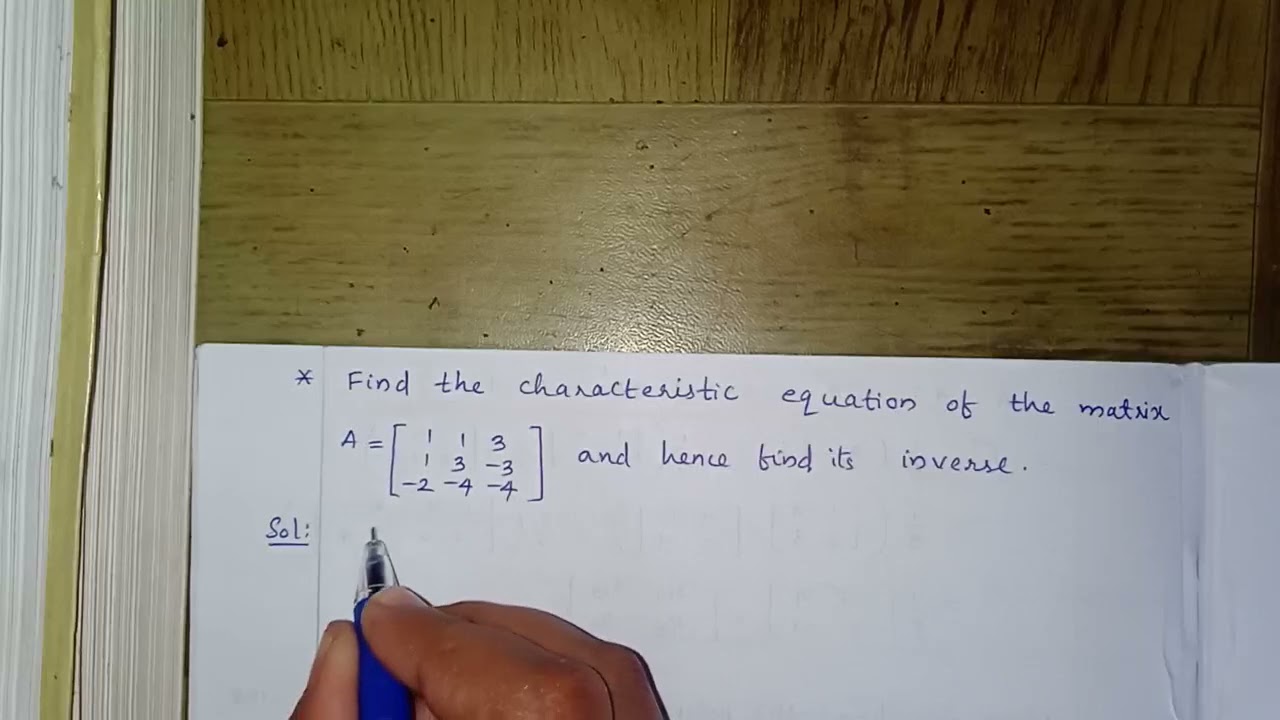 * Find the characteristic equation of the matrix
A = [ 1 1 3
1 3 -3
-2 -4 -4 ] and hence find its inverse.
Sol: